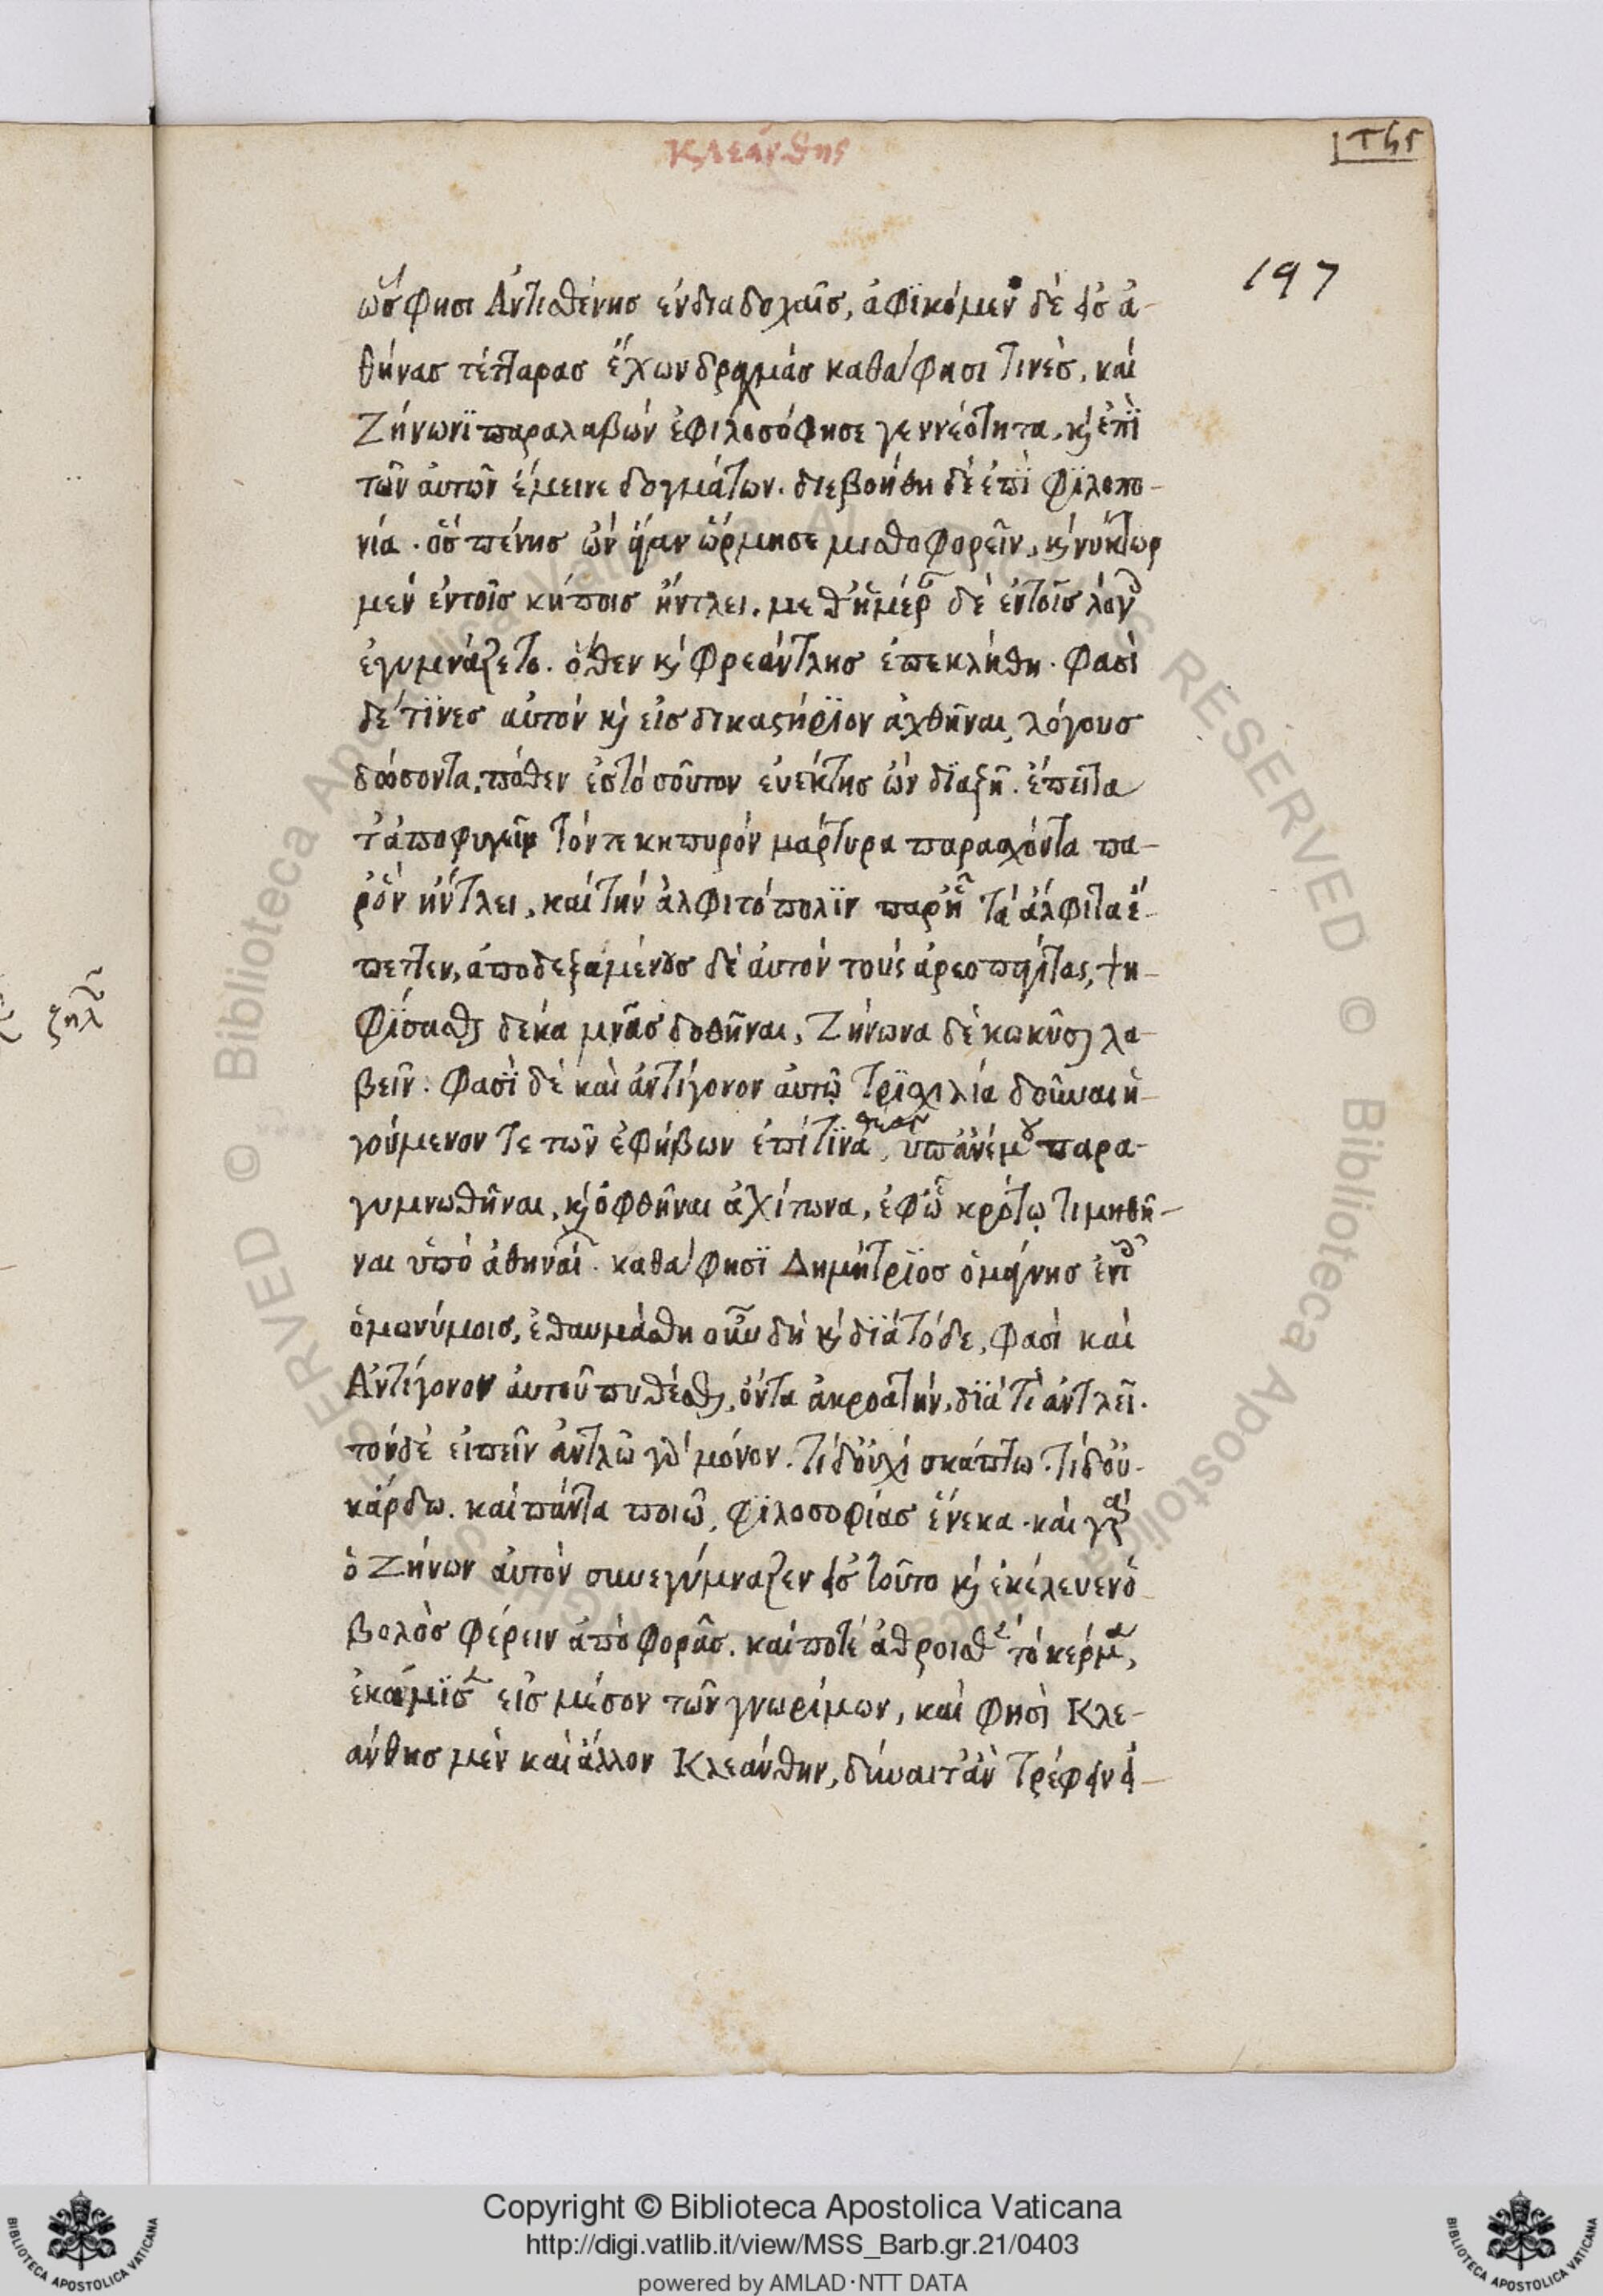 Κλεάνθης
τϞς
197
ὥς φησι Ἀντισθένησ ἐν διαδοχαῖσ, ἀφϊκόμενος δὲ εἰσ ἀ-
θήνασ τέτταρασ ἔχων δραχμάσ καθά φησι τινὲσ, καὶ
Ζήνωνϊ παραλαβὼν ἐφιλοσόφησε γεννεότητα, κ̀ ἐπῒ
τῶν ἀυτῶν ἔμεινε δογμάτων. διεβοήθη δὲ ἐπῒ φϊλοπο-
νία. ὃσ πένησ ὢν ἄγαν ὥρμησε μισθοφορεῖν, κ̀ νύκτωρ
μὲν ἐν τοῖσ κήποισ ἤντλει. μεθ' ἡμέρ δὲ ἐν τοῖσ λόγ
ἐγυμνάζετο. ὅθεν κ̀ Φρεάντλησ ἐπεκλήθη. Φασὶ
δέ τϊνεσ αὐτὸν κ̀ εἰσ δικαστήρϊον ἀχθῆναι, λόγουσ
δώσοντα, πόθεν ἐσ τοσοῦτον ἐυέκτησ ὢν δϊαζῆ. ἔπειτα
τ' ἀποφυγεῖν τόν τε κηπυρὸν μάρτυρα παρασχόντα πα-
ρ' ὃν ἤντλει, καὶ τὴν ἀλφιτόπωλϊν παρ' ἧ τὰ ἄλφιτα ἔ-
πεττεν, ἀποδεξαμένουσ δὲ ἀυτὸν τοὺς ἀρεοπαγίτας, ψη-
φίσασθαι δέκα μνᾶσ δοθῆναι, Ζήνωνα δὲ κωκῦσαι λα-
βεῖν. Φασῒ δὲ καὶ ἀντίγονον ἀυτῷ τρϊσχιλία δοῦναι ἡ-
γούμενον τε τῶν ἐφήβων ἐπί τϊνα θέαν, ὑπ' ἀνέμου παρα-
γυμνωθῆναι, κ̀ ὀφθῆναι ἀχίτωνα, ἐφ' ᾧ κρότῳ τιμηθῆ-
ναι ὑπὸ ἀθηναί. καθά φησϊ Δημήτρϊοσ ὁ μάγνησ ἐν τ
ὁμωνύμοισ, ἐθαυμάσθη οὖν δὴ κ̀ δϊὰ τόδε, φασὶ καὶ
Ἀντίγονον ἀυτοῦ πυθέσθαι, ὄντα ἀκροατὴν, δϊὰ τί ἀντλεῖ.
τὸν δὲ εἰπεῖν ἀντλῶ γὰρ μόνον. τί δ' οὐχὶ σκάπτω. τί δ' οὐ-
κ ἄρδω. καὶ πάντα ποιῶ, φϊλοσοφίασ ἕνεκα. καὶ γὰρ
ὁ Ζήνων ἀυτὸν συνεγύμναζεν εἰσ τοῦτο κ̀ ἐκέλευεν ὀ-
βολὸσ φέρειν ἀποφορᾶσ. καί ποτε ἀθροισθὲ τὸ κέρμα,
ἐκόμϊσ εἰσ μέσον τῶν γνωρίμων, καὶ φησὶ Κλε-
άνθησ μὲν καὶ ἄλλον Κλεάνθην, δύναιτ' ἂν τρέφειν εἰ-
ζηλ
Copyright © Biblioteca Apostolica Vaticana
http://digi.vatlib.it/view/MSS_Barb.gr.21/0403
powered by AMLAD·NTT DATA